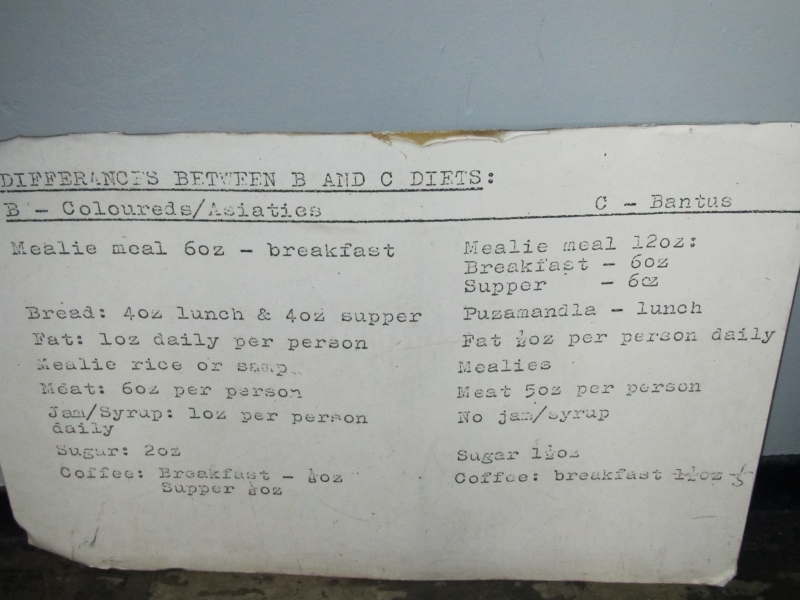 DIFFERANCES BETWEEN B AND C DIETS:
B - Coloureds/Asiaties
C - Bantus
Mealie meal 6oz - breakfast
Mealie meal 12oz:
Breakfast - 6oz
Supper - 6oz
Bread: 4oz lunch & 4oz supper
Puzamandla - lunch
Fat: 1oz daily per person
Fat ½oz per person daily
Mealie rice or samp
Mealies
Meat: 6oz per person
Meat 5oz per person
Jam/Syrup: 1oz per person
daily
No jam/syrup
Sugar: 2oz
Sugar 1½oz
Coffee: Breakfast - oz
Supper oz
Coffee: breakfast